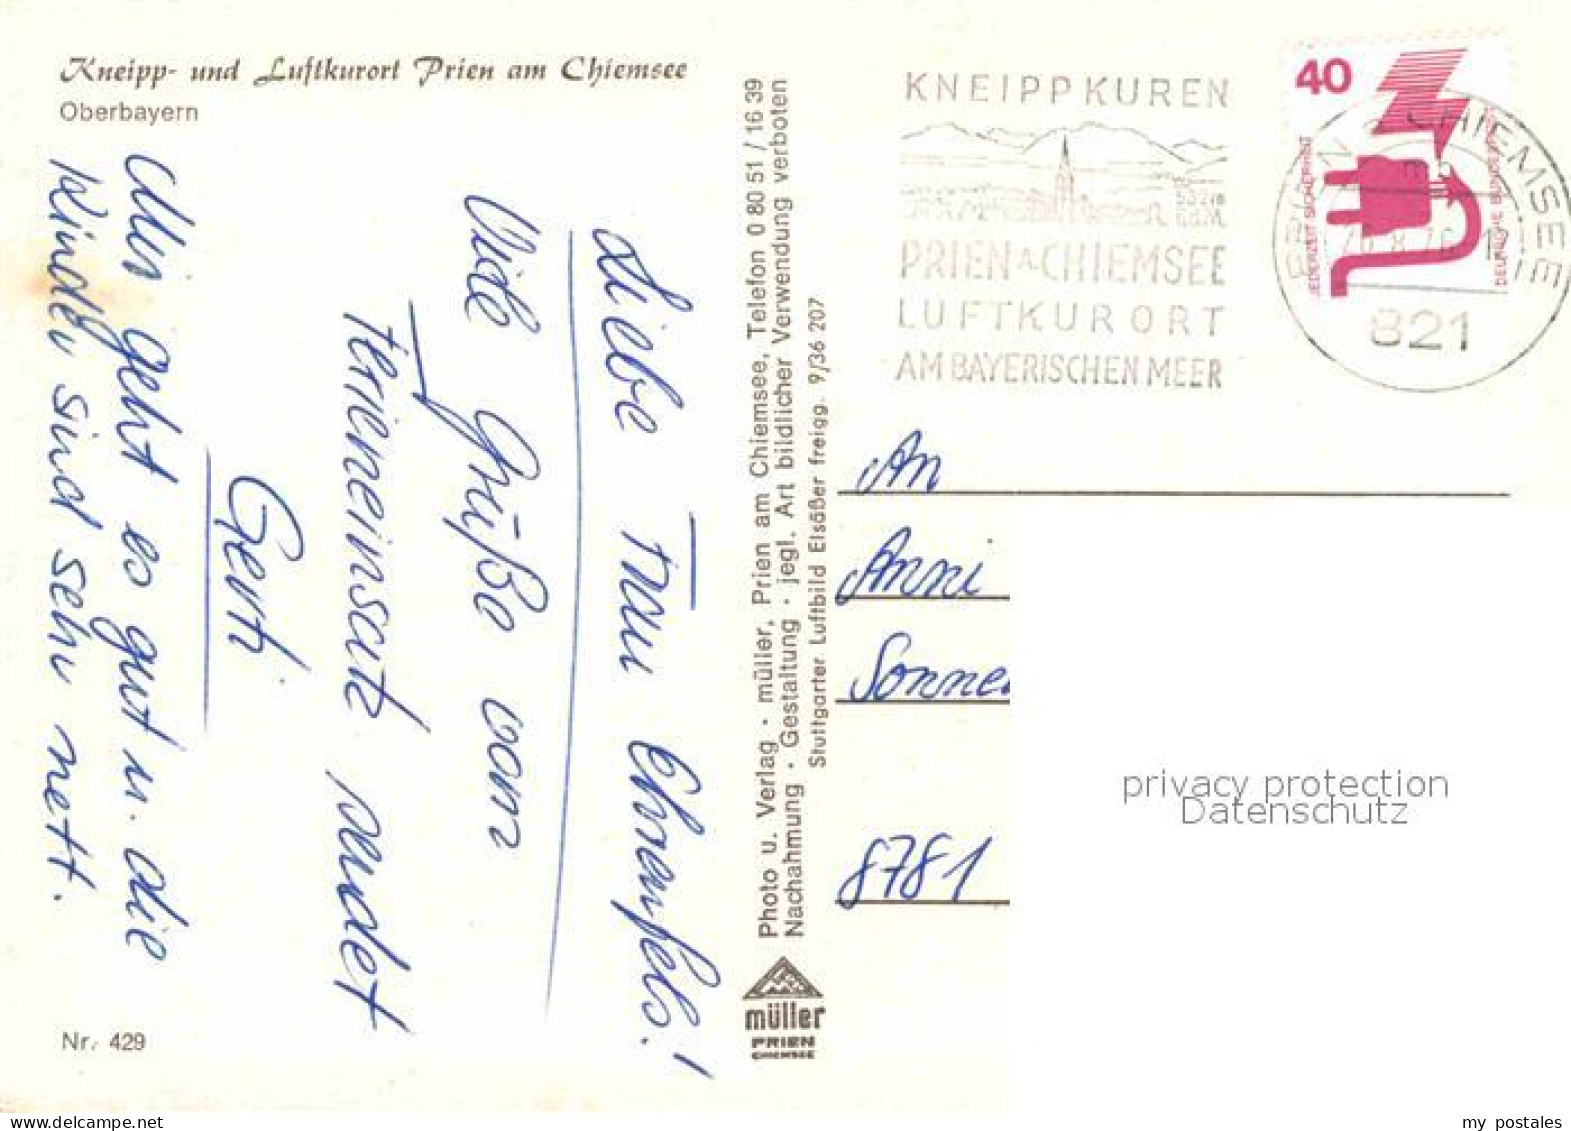 Kneipp- und Luftkurort Prien am Chiemsee
Oberbayern
Liebe Frau Ehrenfels!
Viele Grüße vom
Ferieneinsatz sendet
Gerti
Mir geht es gut u. die
Kinder sind sehr nett.
Nr. 429
Photo u. Verlag · müller, Prien am Chiemsee, Telefon 0 80 51 / 16 39
Nachahmung · Gestaltung · jegl. Art bildlicher Verwendung verboten
Stuttgarter Luftbild Elsäßer freigg. 9/36 207
müller
PRIEN
CHIEMSEE
KNEIPPKUREN
PRIEN A CHIEMSEE
LUFTKURORT
AM BAYERISCHEN MEER
40
JEDERZEIT SICHERHEIT
DEUTSCHE BUNDESPOST
CHIEMSEE
821
An
Anni
Sonnen
8781
privacy protection
Datenschutz
my-postales.delcampe.net
my_postales